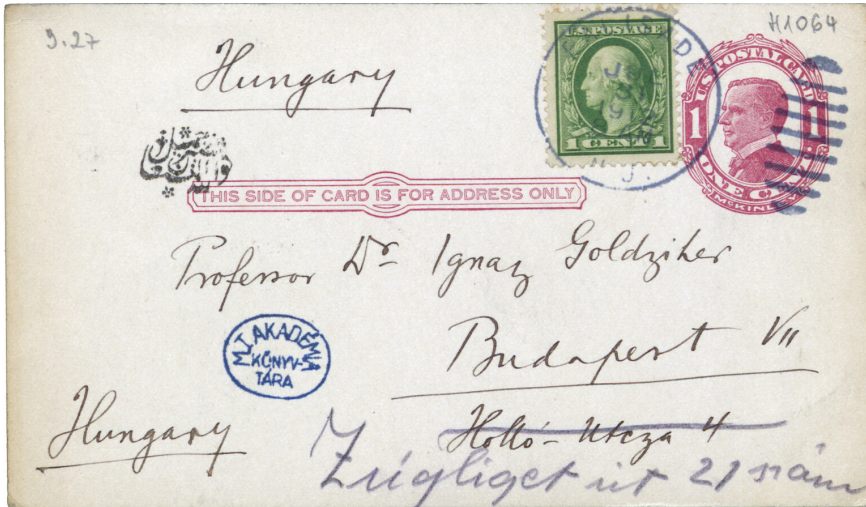 9.27
H1064
Hungary
U.S. POSTAGE
1 CENT 1
U.S. POSTAL CARD
1 1
ONE CENT
McKINLEY
THIS SIDE OF CARD IS FOR ADDRESS ONLY
Professor Dr Ignaz Goldziher
M.T. AKADÉMIA
KÖNYV-
TÁRA
Budapest VII
Holló-Utcza 4
Hungary
Zugliget út 21 szám